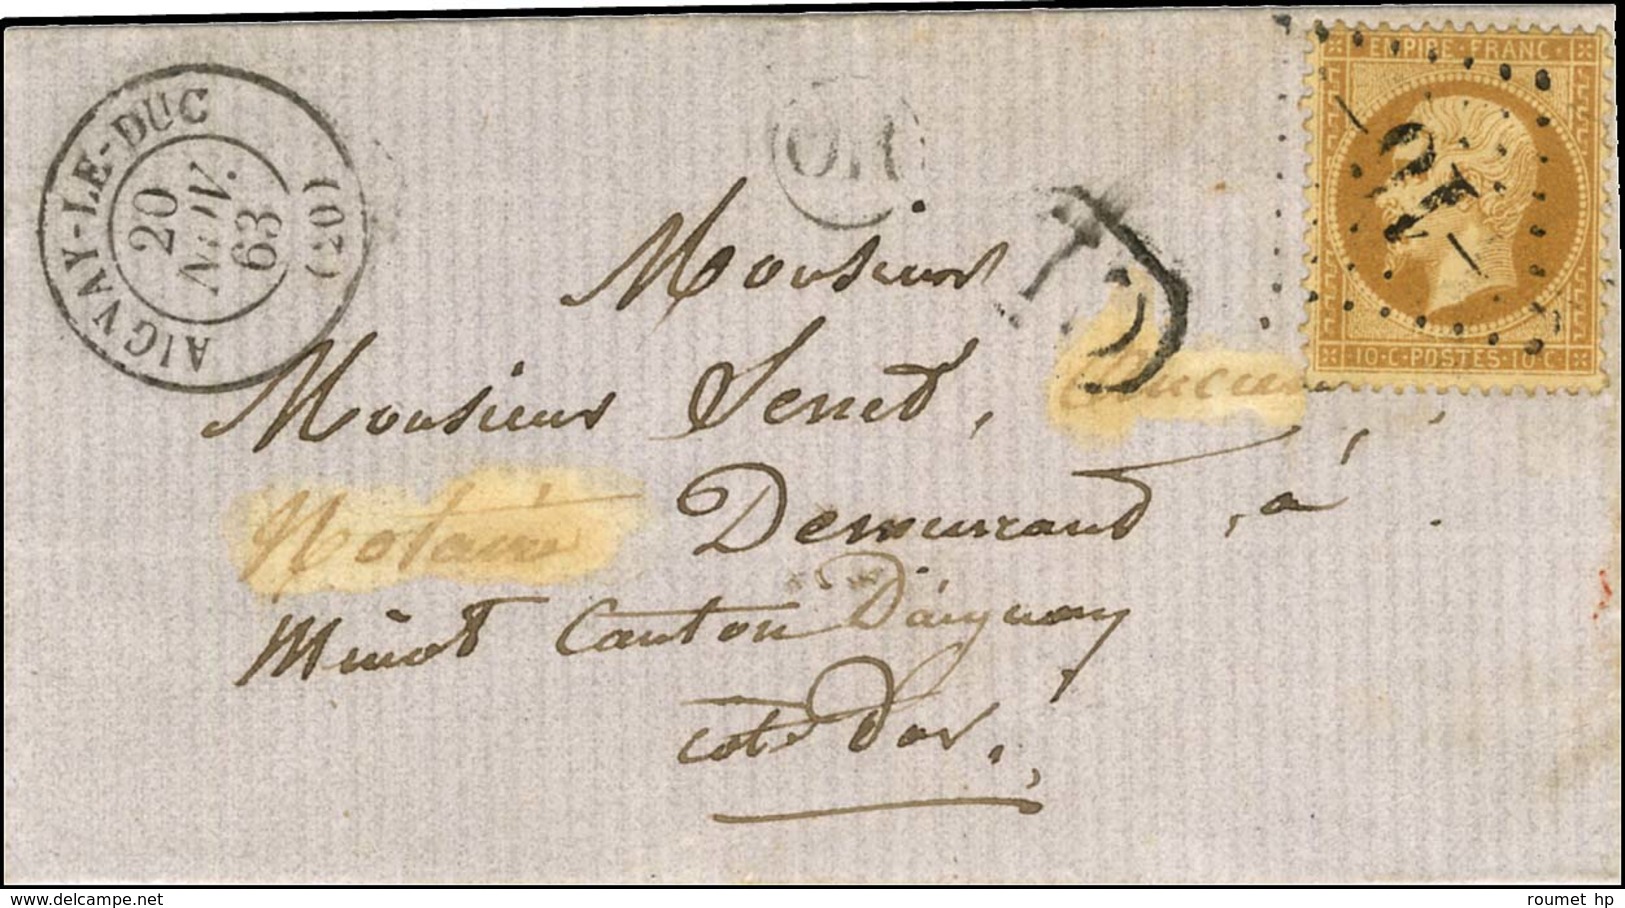 EMPIRE·FRANC
AIGNAY-LE-DUC (20)
20
NOV.
63
OR
12
10·C·POSTES·10·C
Monsieur
Monsieur Serret, ancien
Notaire Demeurant, à
Minot Canton D'aignay
Cote D'or.
delcampe.net
roumet hp